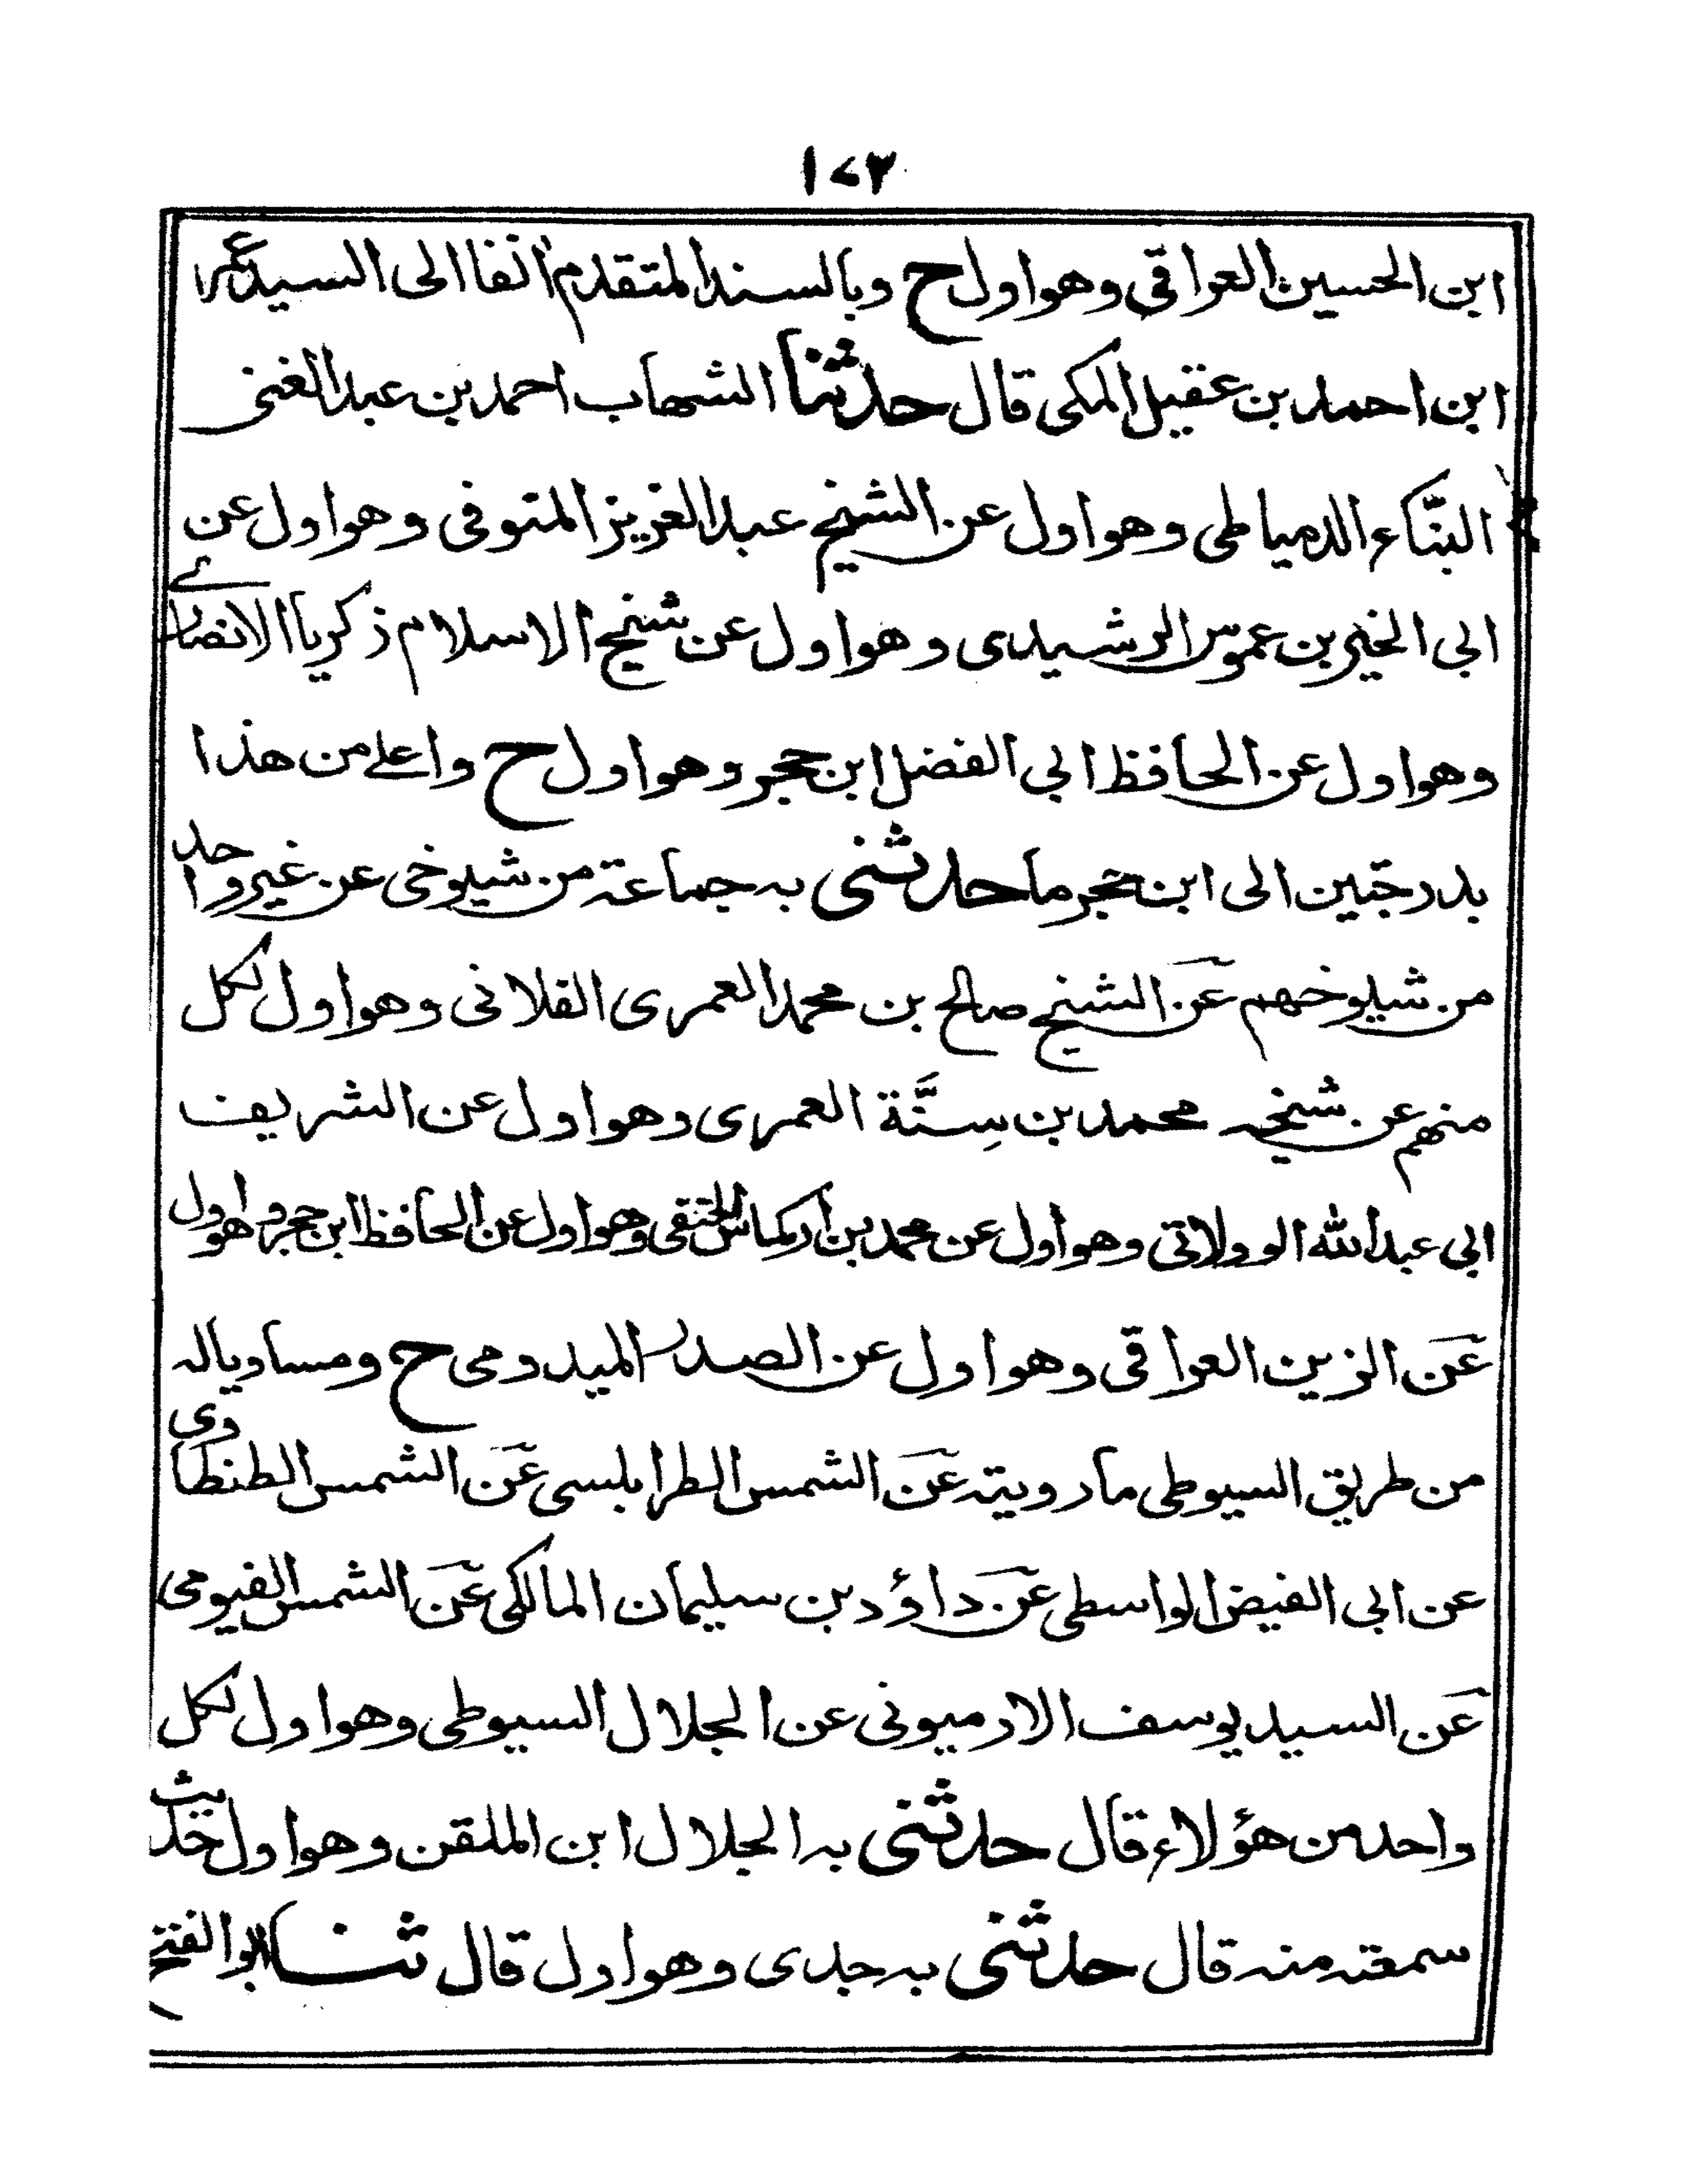 ١٧٣
ابن الحسين العراقي وهو اول ح وبالسند المتقدم انفا الى السيد عمر
ابن احمد بن عقيل المكي قال حدثنا الشهاب احمد بن عبد الغنى
البنّاء الدمياطي وهو اول عن الشيخ عبد العزيز المتوفى وهو اول عن
ابي الخير بن عموس الرشيدى وهو اول عن شيخ الاسلام زكريا الانصارى
وهو اول عن الحافظ ابي الفضل ابن حجر وهو اول ح واعلى من هذا
بدرجتين الى ابن حجر ما حدثنى به جماعة من شيوخى عن غير واحد
من شيوخهم عن الشيخ صالح بن محمد العمرى الفلانى وهو اول لكل
منهم عن شيخه محمد بن سِنَّة العمرى وهو اول عن الشريف
ابي عبد الله الوولاتى وهو اول عن محمد بن اركماش الحنفى وهو اول عن الحافظ ابن حجر وهو اول
عن الزين العراقى وهو اول عن الصدر الميدومى ح ومساويا له
من طريق السيوطى ما رويته عن الشمس الطرابلسى عن الشمس الطنطاوى
عن ابى الفيض الواسطى عن داؤد بن سليمان المالكى عن الشمس الفيومى
عن السيد يوسف الارميونى عن الجلال السيوطى وهو اول لكل
واحد من هؤلاء قال حدثنى به الجلال ابن الملقن وهو اول حديث
سمعته منه قال حدثنى به جدى وهو اول قال ثنا ابو الفتح